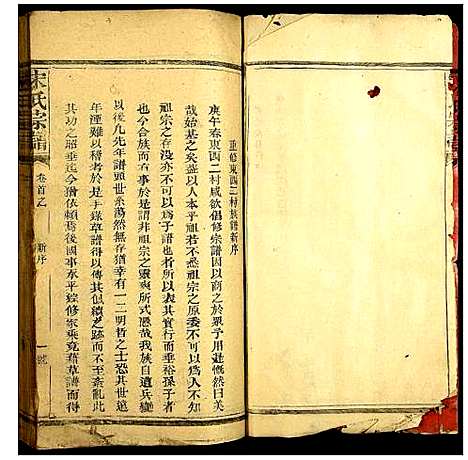 重修東西二村族譜新序
庚午春東西二村咸欲倡修宗譜因以商之於眾予用慨然曰美
哉始基之矣蓋狀人本乎祖若不悉祖宗之原委不可以為人不知
祖宗之存没亦不可以為子譜也者所以表其實行而垂裕孫子者
也而右事於是譜非祖宗之靈爽所式憑哉我族自遭兵變
以後凡先年譜頭世系蕩然無存猶幸有一二明哲之士恐其世遠
年湮難以稽考於是手錄草譜得以傳其似續之跡而不至紊亂此
其功之昭垂迄今猶依賴焉後國事永平錝修家乘竟藉草譜而得
宋氏宗譜
卷首之
新序
一號